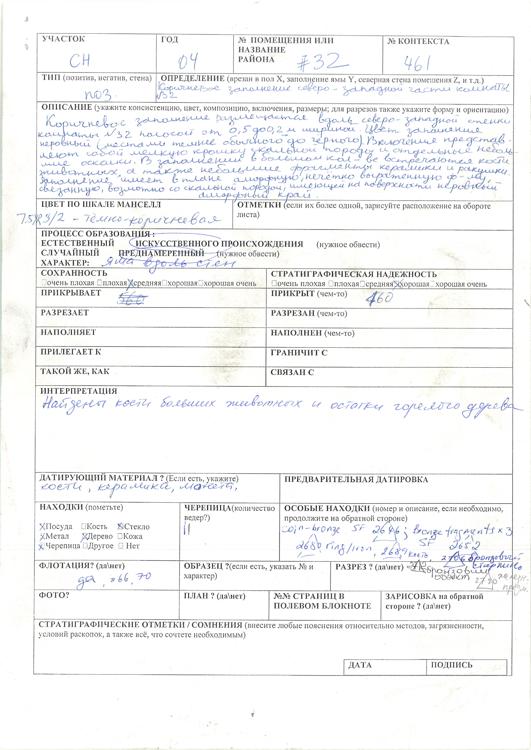 УЧАСТОК ГОД № ПОМЕЩЕНИЯ ИЛИ НАЗВАНИЕ РАЙОНА № КОНТЕКСТА
СН 04 #32 461
ТИП (позитив, негатив, стена) ОПРЕДЕЛЕНИЕ (врезан в пол X, заполнение ямы Y, северная стена помещения Z, и т.д.)
поз Коричневое заполнение северо-западной части комнаты
№32
ОПИСАНИЕ (укажите консистенцию, цвет, композицию, включения, размеры; для разрезов также укажите форму и ориентацию)
Коричневое заполнение размещается вдоль северо-западной стенки
комнаты №32 полосой от 0,5 до 0,2 м шириной. Цвет заполнения
неровный (местами темнее обычного до черного). Включение представ-
ляют собой мелкую крошку скальной породы и отдельные неболь-
шие осколки. В заполнении в большом кол-ве встречаются кости
животных, а также небольшие фрагменты керамики и ракушки.
Заполнение имеет в плане аморфную, нечётко выраженную ф-му,
связанную, возможно со скальной породой, имеющей на поверхности неровный
аморфный край.
ЦВЕТ ПО ШКАЛЕ МАНСЕЛЛ ОТМЕТКИ (если их более одной, зарисуйте расположение на обороте листа)
- тёмно-коричневая
ПРОЦЕСС ОБРАЗОВАНИЯ :
ЕСТЕСТВЕННЫЙ ИСКУССТВЕННОГО ПРОИСХОЖДЕНИЯ (нужное обвести)
СЛУЧАЙНЫЙ ПРЕДНАМЕРЕННЫЙ (нужное обвести)
ХАРАКТЕР: яма вдоль стен
СОХРАННОСТЬ СТРАТИГРАФИЧЕСКАЯ НАДЕЖНОСТЬ
□очень плохая □плохая Xсредняя □хорошая □хорошая очень □очень плохая □плохая □средняя Xхорошая □хорошая очень
ПРИКРЫВАЕТ 460 ПРИКРЫТ (чем-то) 460
РАЗРЕЗАЕТ РАЗРЕЗАН (чем-то)
НАПОЛНЯЕТ НАПОЛНЕН (чем-то)
ПРИЛЕГАЕТ К ГРАНИЧИТ С
ТАКОЙ ЖЕ, КАК СВЯЗАН С
ИНТЕРПРЕТАЦИЯ
Найдены кости больших животных и остатки горелого дерева
ДАТИРУЮЩИЙ МАТЕРИАЛ ? (Если есть, укажите) ПРЕДВАРИТЕЛЬНАЯ ДАТИРОВКА
кости, керамика, монета,
НАХОДКИ (пометьте) ЧЕРЕПИЦА(количество ведер?) ОСОБЫЕ НАХОДКИ (номер и описание, если необходимо, продолжите на обратной стороне)
XПосуда □Кость XСтекло II coin-bronze SF 2646; bronze fragments x 3
XМеталл XДерево □Кожа SF 2652
XЧерепица □Другое □Нет 2689 кость, бронзовый
ФЛОТАЦИЯ? (да\нет) ОБРАЗЕЦ ?(если есть, указать № и характер) РАЗРЕЗ ? (да\нет) бронзовый
объект 2790
да, #66, 70
ФОТО? ПЛАН ? (да\нет) №№ СТРАНИЦ В ПОЛЕВОМ БЛОКНОТЕ ЗАРИСОВКА на обратной стороне ? (да\нет)
СТРАТИГРАФИЧЕСКИЕ ОТМЕТКИ / СОМНЕНИЯ (внесите любые пояснения относительно методов, загрязненности, условий раскопок, а также всё, что сочтете необходимым)
ДАТА ПОДПИСЬ